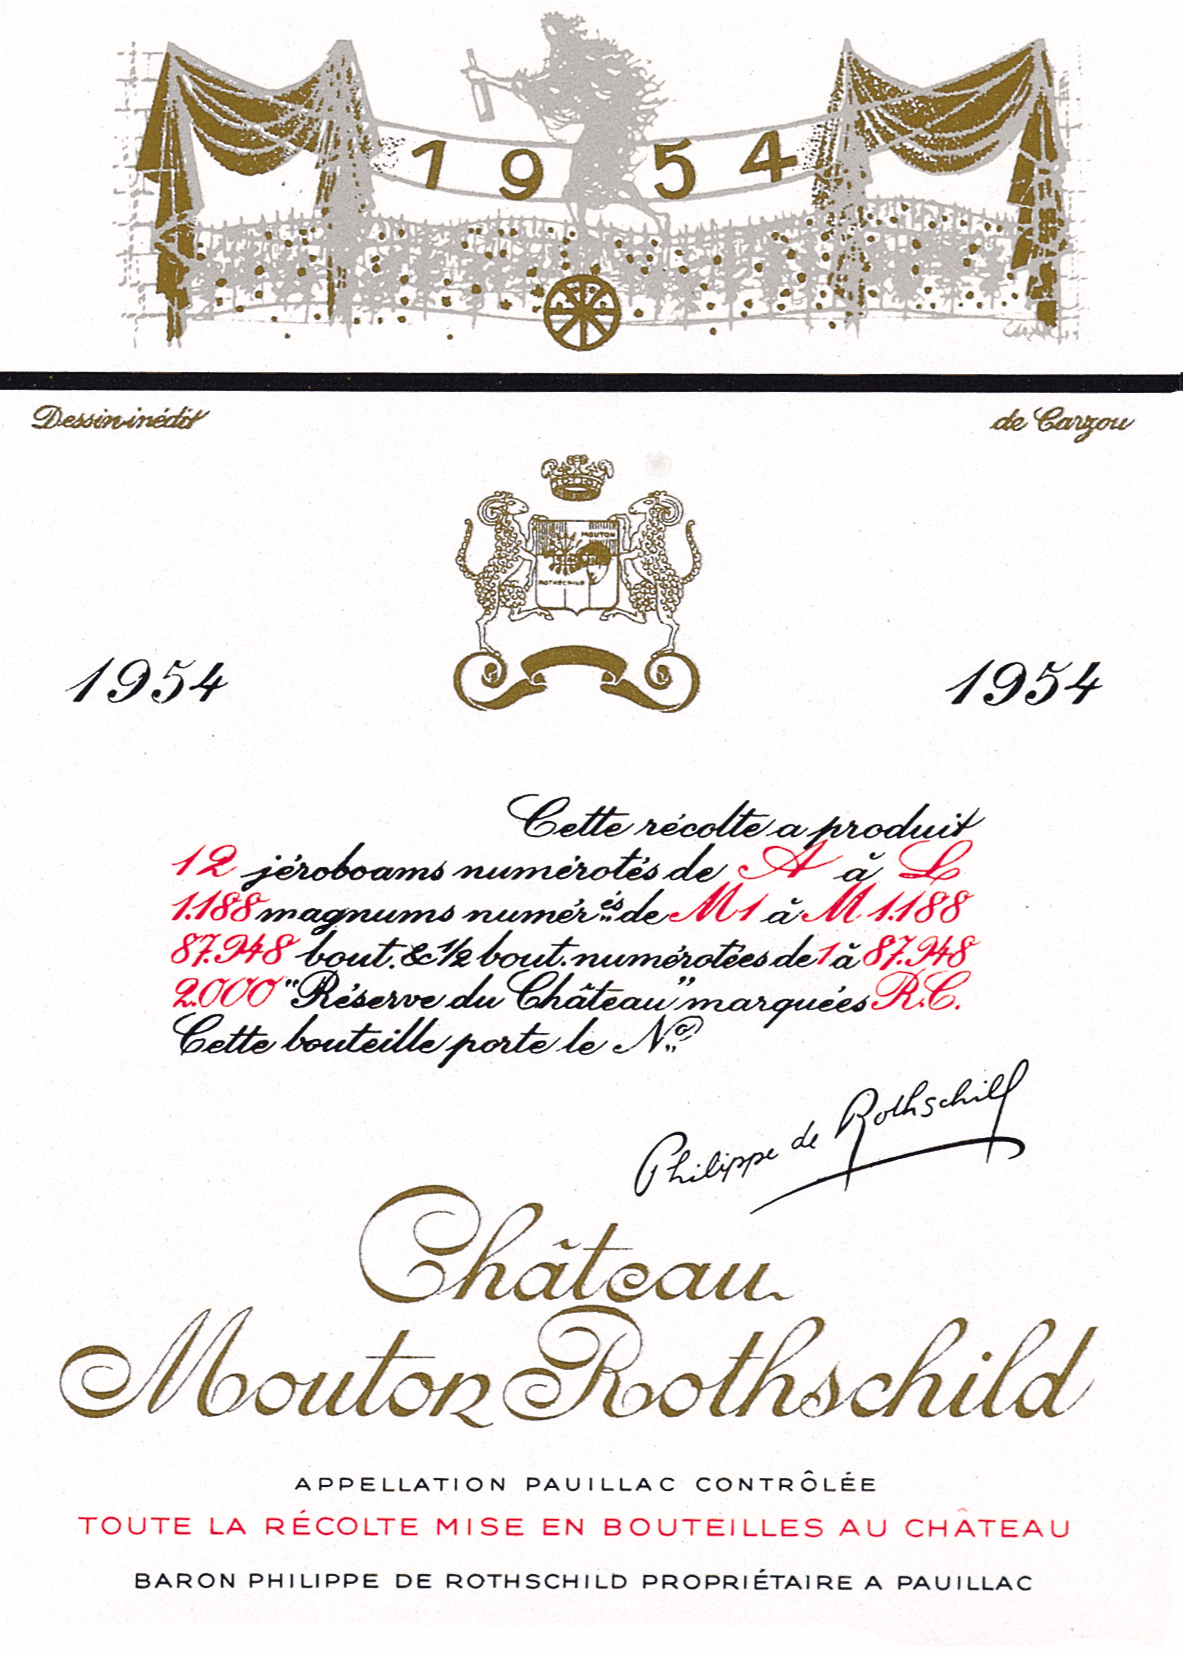 1954
Dessin inédit de Carzou
MOUTON
ROTHSCHILD
1954 1954
Cette récolte a produit
12 jéroboams numérotés de A à L
1.188 magnums numér.és de M1 à M 1.188
87.948 bout. & 1/2 bout. numérotées de 1 à 87.948
2.000 "Réserve du Château" marquées R.C.
Cette bouteille porte le No
Philippe de Rothschild
Château
Mouton Rothschild
APPELLATION PAUILLAC CONTRÔLÉE
TOUTE LA RÉCOLTE MISE EN BOUTEILLES AU CHÂTEAU
BARON PHILIPPE DE ROTHSCHILD PROPRIÉTAIRE A PAUILLAC